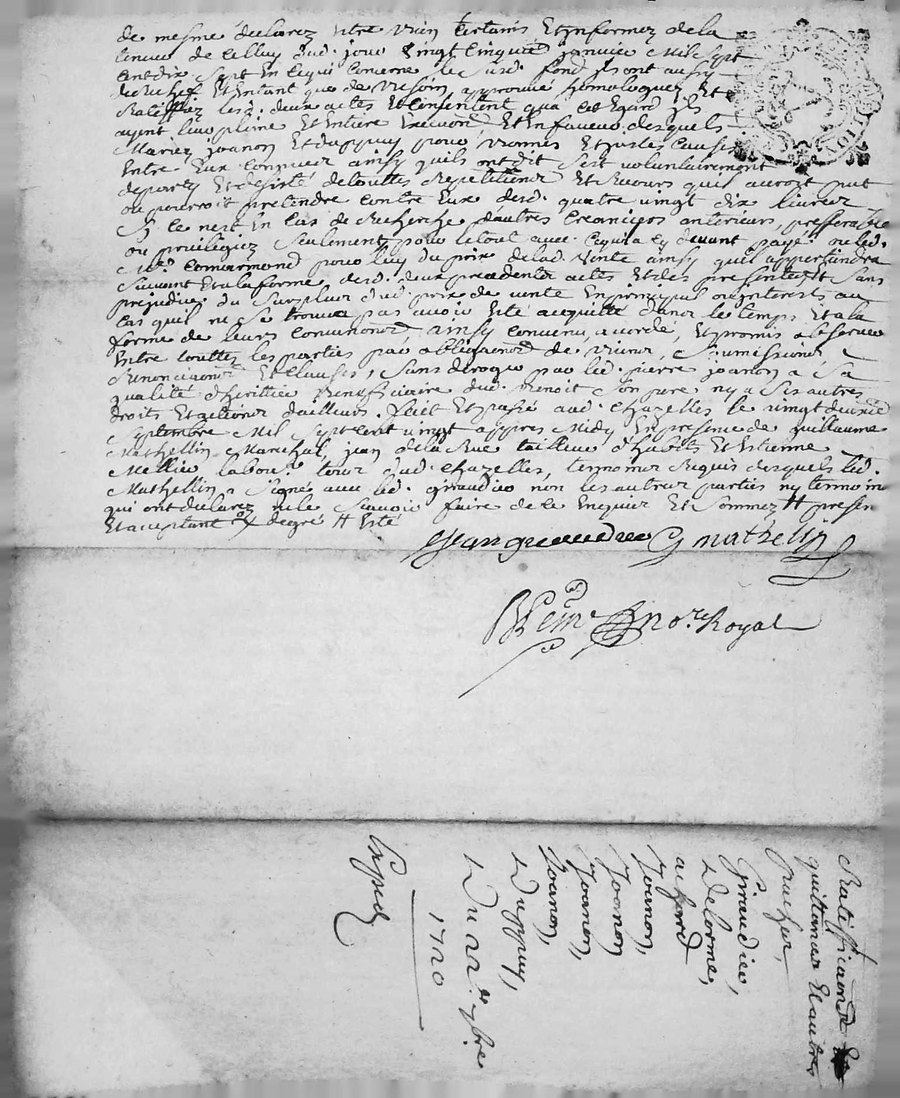 de mesme declarez estre bien certains Et Informez de la
teneur de celluy dud. jour vingt cinquie janvier Mil sept
cent dix sept En ce qui concerne le susd. fond ils ont aussy
derechef Et Entant que de besoin approuvé homologuez Et
Ratiffiez lesd. deux actes Et consentent qua cet Egard ils
ayent leur pleine Et Entiere Execuon, Et En faveur desquels
Mariez joanon Et duppuy pour bonnes Et justes causes
Entre Eux connues ainsy quils ont dit sest volontairement
departy Et desisté de touttes Repetitions Et Recours qui auroit put
ou pourroit pretendre contre Eux desd. quatre vingt dix livres
Sy ce nest En cas de Recherche d'autres creanciers anterieurs, prefferables
ou privilegiez seulement pour le tout avec ce qui a cy devant payé
Mr. comarmond pour luy du prix de lad. vente ainsy quil appartiendra
suivant Et a la forme desd. deux precedents actes Et des presentes Et sans
prejudice du surplus dud. prix de vente En principal ou interests au
cas quil ne se trouva pas avoir Esté acquitté dans le temps Et a la
forme de leurs convenons, ainsy convenu accordé, Et promis observer
Entre touttes les parties par obligaons de biens, soumissions,
Renonciaons Et clauses, sans deroger par led. pierre joanon a sa
qualité d'heritier Beneficiaire dud. Benoit son pere ny a ses autres
droits Et actions dailleurs. fait Et passé aud. chazelles le vingt deuxie
septembre Mil sept cent vingt appres midy En presence de guillaume
Mathellin Marechal, jean delarue tailleur d'habits Et Estienne
Mellier labour. tous dud. chazelles, temoins Requis desquels led.
Mathellin a signé avec led. giraudier non les autres parties ny temoins
qui ont declarez ne le scavoir faire de ce Enquier Et Sommez # presen
Et acceptant degré # Esté
Jean giraudier G mathellin
nore. Royal
Ratifficaon Et
quittance Et autre,
pour
Giraudier,
Delorme,
Joanon,
Joanon
Joanon,
Joanon,
Duppuy,
Du 22e. 7bre
1720
Exped